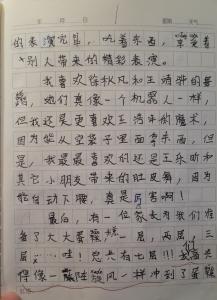 年 月 日 星期 天气
的表演完毕，吃着东西，享受着
别人带来的精彩表演。
我喜欢徐秋凡和王清祥的舞
蹈，她们真像一个机器人一样，
但我还是更喜欢王清平的魔术，
因为能从空袋子里面拿东西，但
是，我最最喜欢的还是王乐昕和
其它小朋友带来的肚皮舞，因为
能自动下腰，真是厉害啊！
最后，有一位家长为我们准
备了大大蛋糕，一层，两层，三
层，……哇！总共有七层！！！我们
像一阵旋风一样冲到了蛋糕